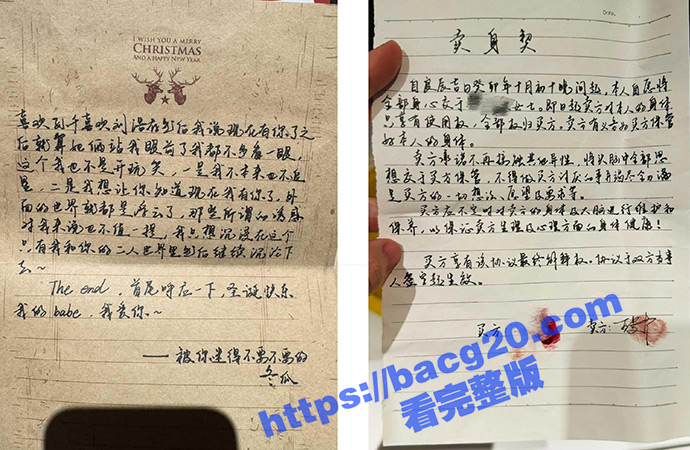 I WISH YOU A MERRY
CHRISTMAS
AND A HAPPY NEW YEAR
喜欢瓦千喜欢刘浩存
然后我说现在有你了之
后就算她俩站我眼前了我都不多看一眼,
这个我也不是开玩笑,一是我不本来也不追
星,二是我想让你知道现在我有你了,外
面的世界就都是浮云了,那些所谓的诱惑
对我来说也不值一提,我只想沉浸在这个
只有我和你的二人世界里然后继续沉沦下
去~
The end,首尾呼应一下,圣诞快乐
我的babe,我爱你~
——被你迷得不要不要的
冬瓜
Date.
卖身契
自良辰吉日癸卯年十月初十晚间起,本人自愿将
全部身心交于 女士。即日起卖方对本人的身体
只享有使用权,全部权归买方。卖方有义务为买方保管
好本人的身体。
卖方承诺不再接触其他异性,将头脑中全部思
想交于买方保管,不得做买方讨厌的事并竭尽全力满
足买方的一切想法、愿望及要求等。
买方应不定时对卖方的身体及大脑进行维护和
保养,以保证卖方生理及心理方面的身体健康!
买方享有该协议最终解释权。协议于双方当事
人签字起生效。
买方: 卖方:
https://bacg20.com
看完整版